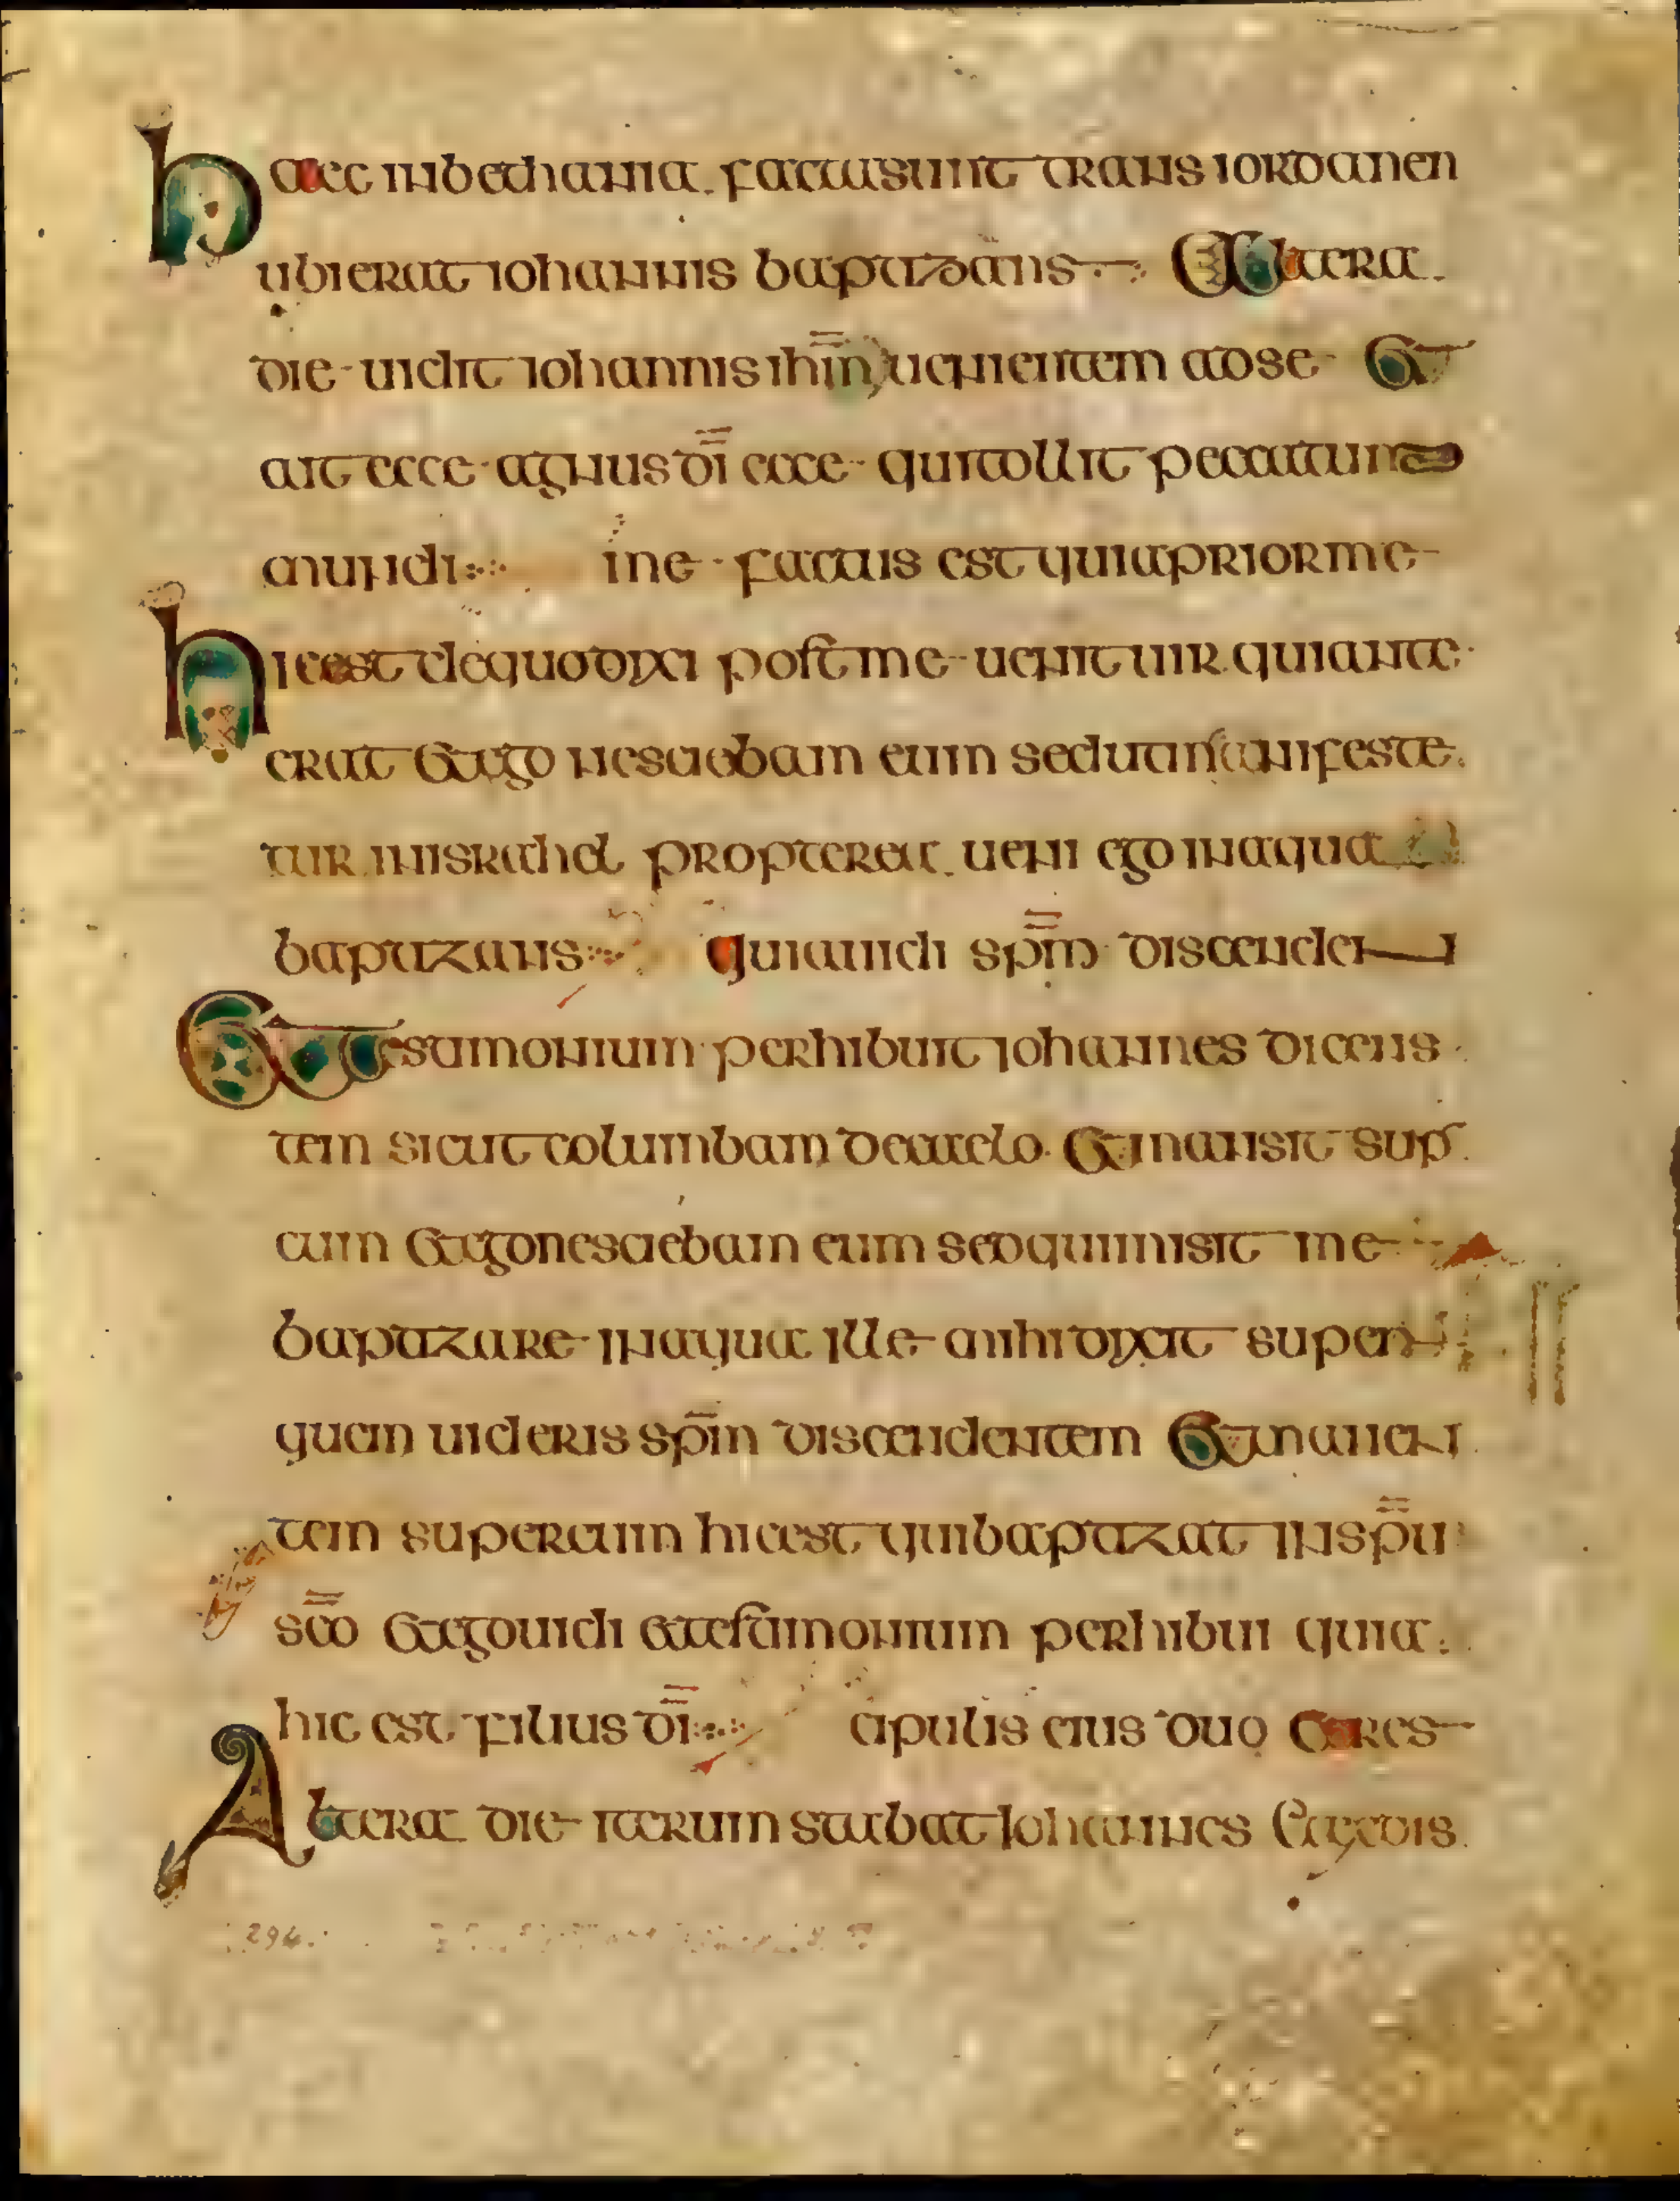 haec in bethania factu sunt trans iordanen
ubi erat iohannis baptizans Altera
die uidit iohannis ihm uenientem ad se Et
ait ecce agnus di ecce qui tollit peccatum
mundi me factus est quia prior me
hic est de quo dixi post me uenit uir qui ante
erat Et ego nesciebam eum sed ut manifeste
tur in israhel propterea ueni ego in aqua
baptizans quia uidi spm discenden
Et testimonium perhibuit iohannes dicens
tem sicut columbam de caelo Et mansit sup
eum Et ego nesciebam eum sed qui missit me
baptizare in aqua ille mihi dixit super
quem uideris spm discendentem Et manen
tem super eum hic est qui baptizat in spu
sco Et ego uidi et testimonium perhibui quia
hic est filius di cipulis eius duo Et res
Altera die iterum stabat Iohannes Et ex dis
294.